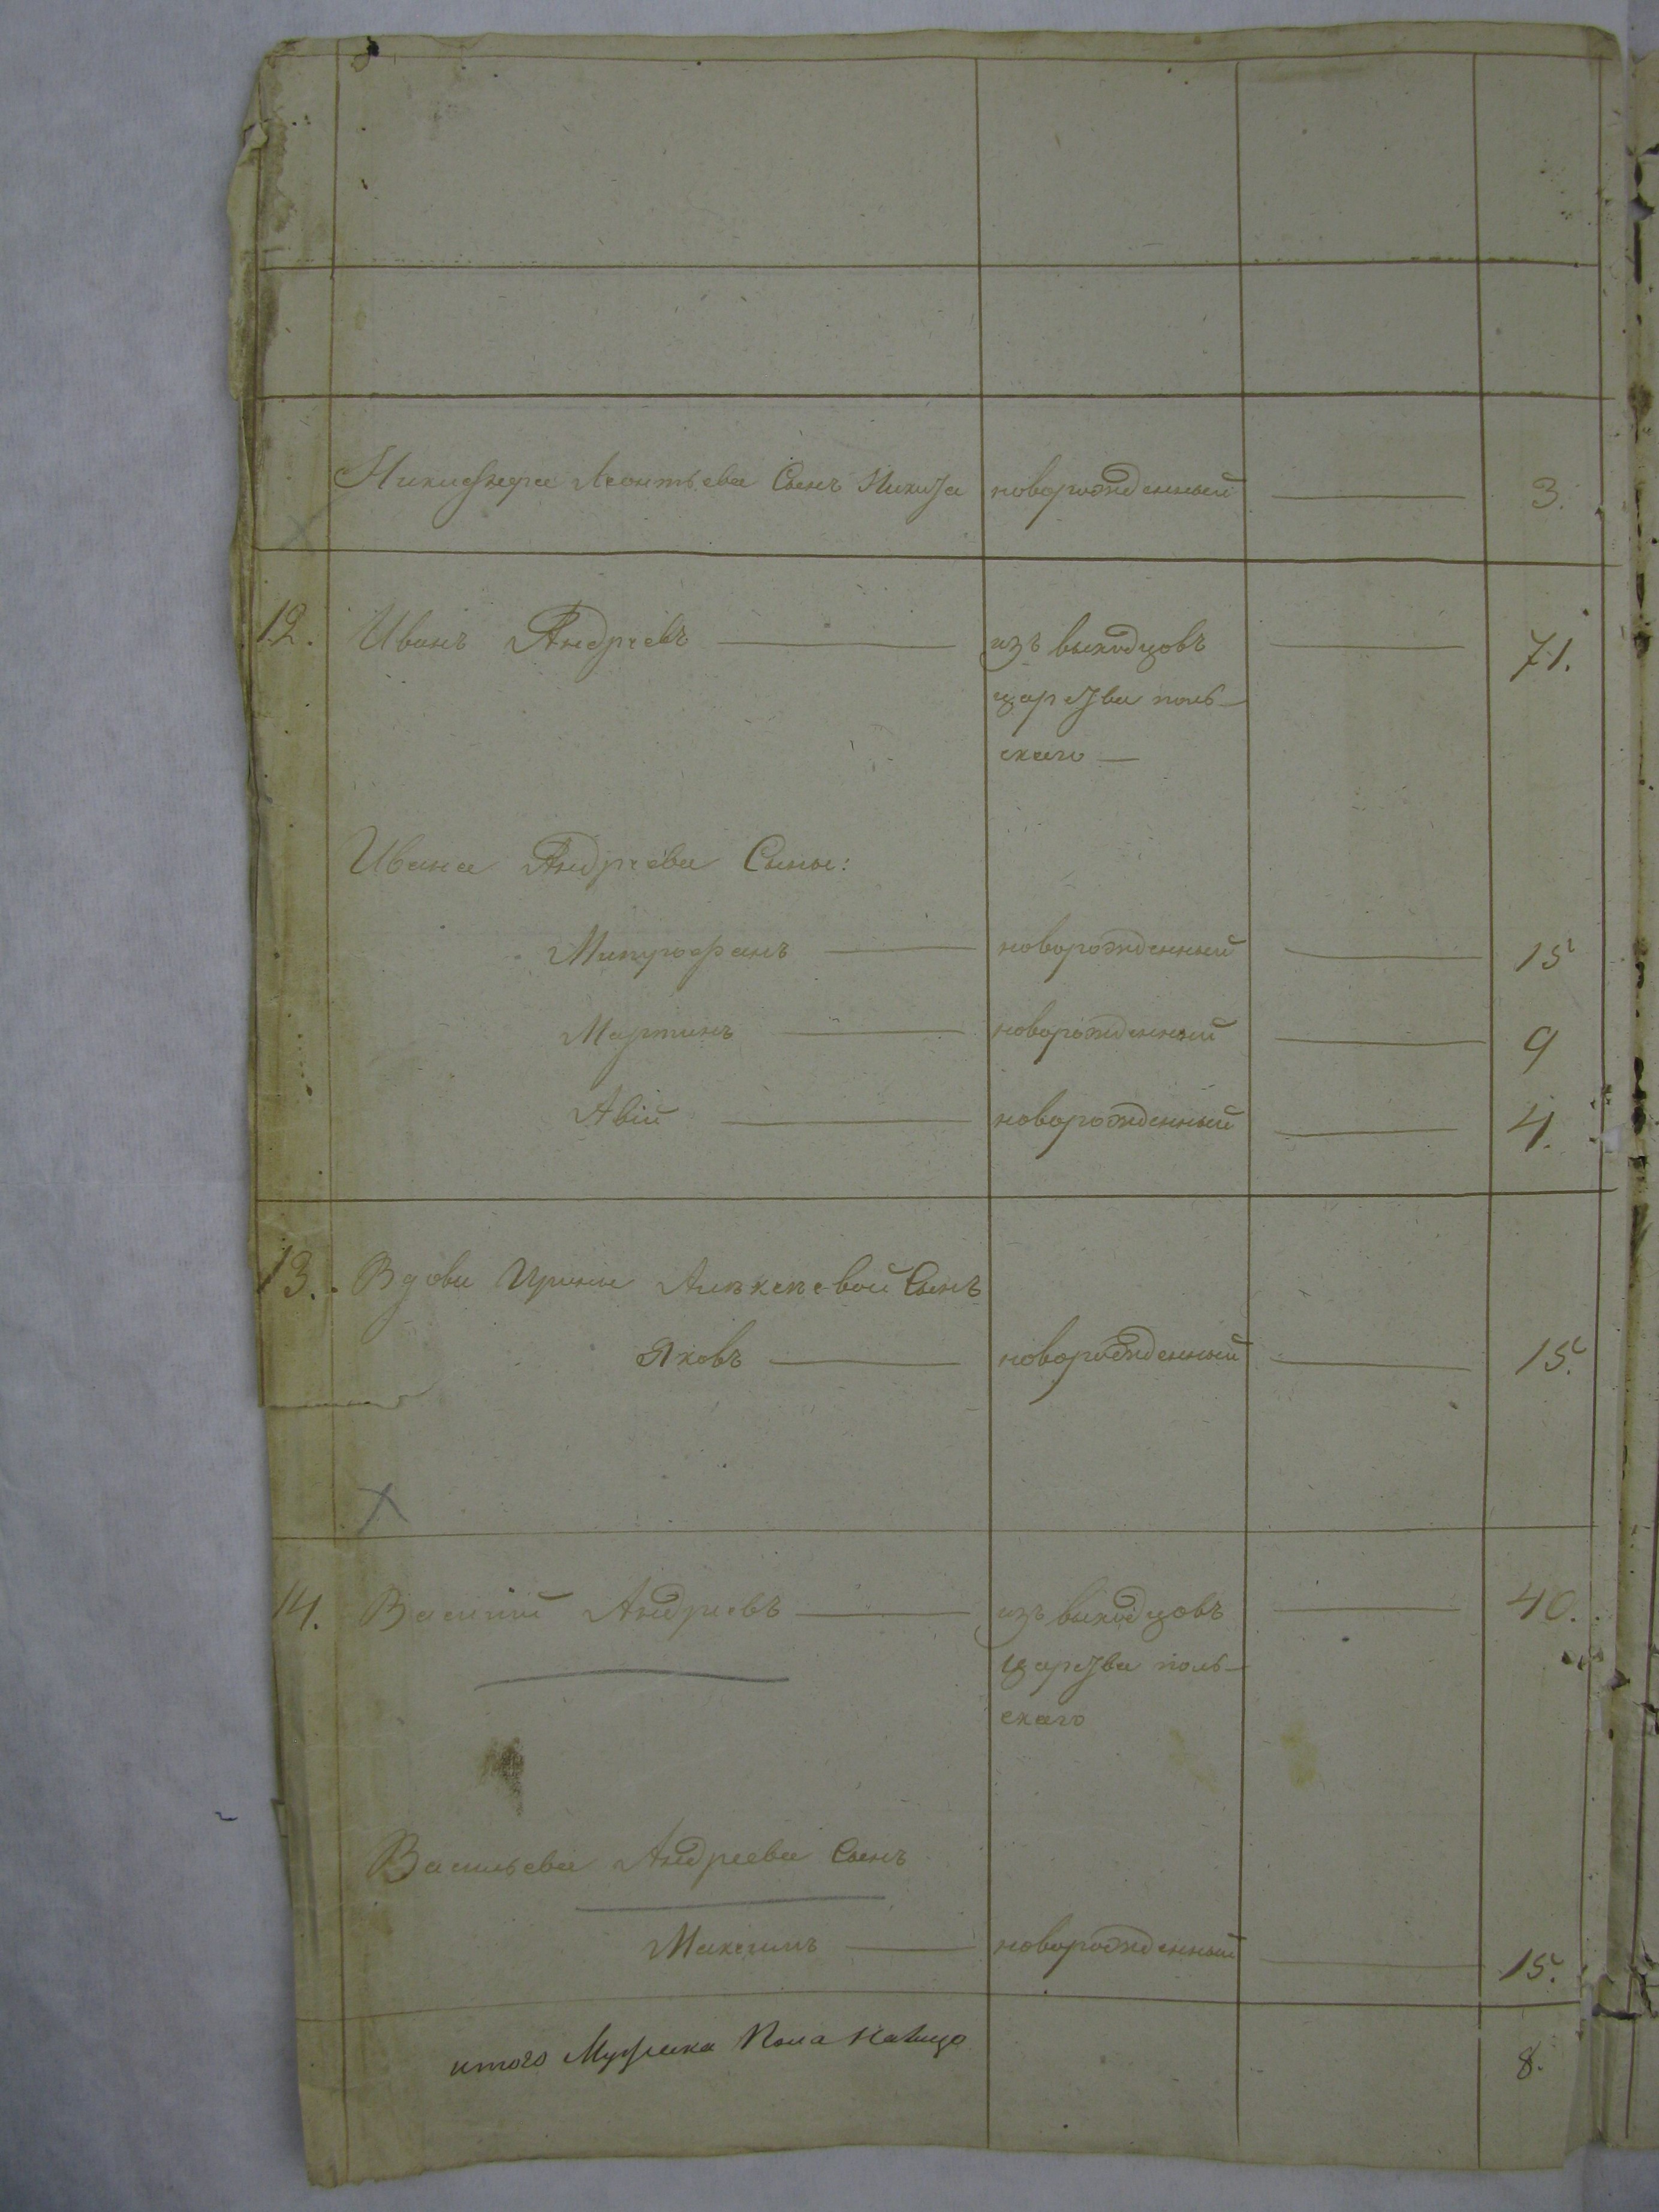 Никифора Леонтьева Сынъ Никита новорожденный 3.
12. Иванъ Андреевъ изъ выходцовъ 71.
царства поль-
скаго
Ивана Андреева Сыны:
Митрофанъ новорожденный 15
Мартинъ новорожденный 9
Авiй новорожденный 4.
13. Вдовы Ирины Алексеевой Сынъ
Яковъ новорожденный 15.
14. Василiй Андреевъ изъ выходцовъ 40.
царства поль-
скаго
Васильева Андреева Сынъ
Максимъ новорожденный 15.
итого Мужеска Пола налицо 8.